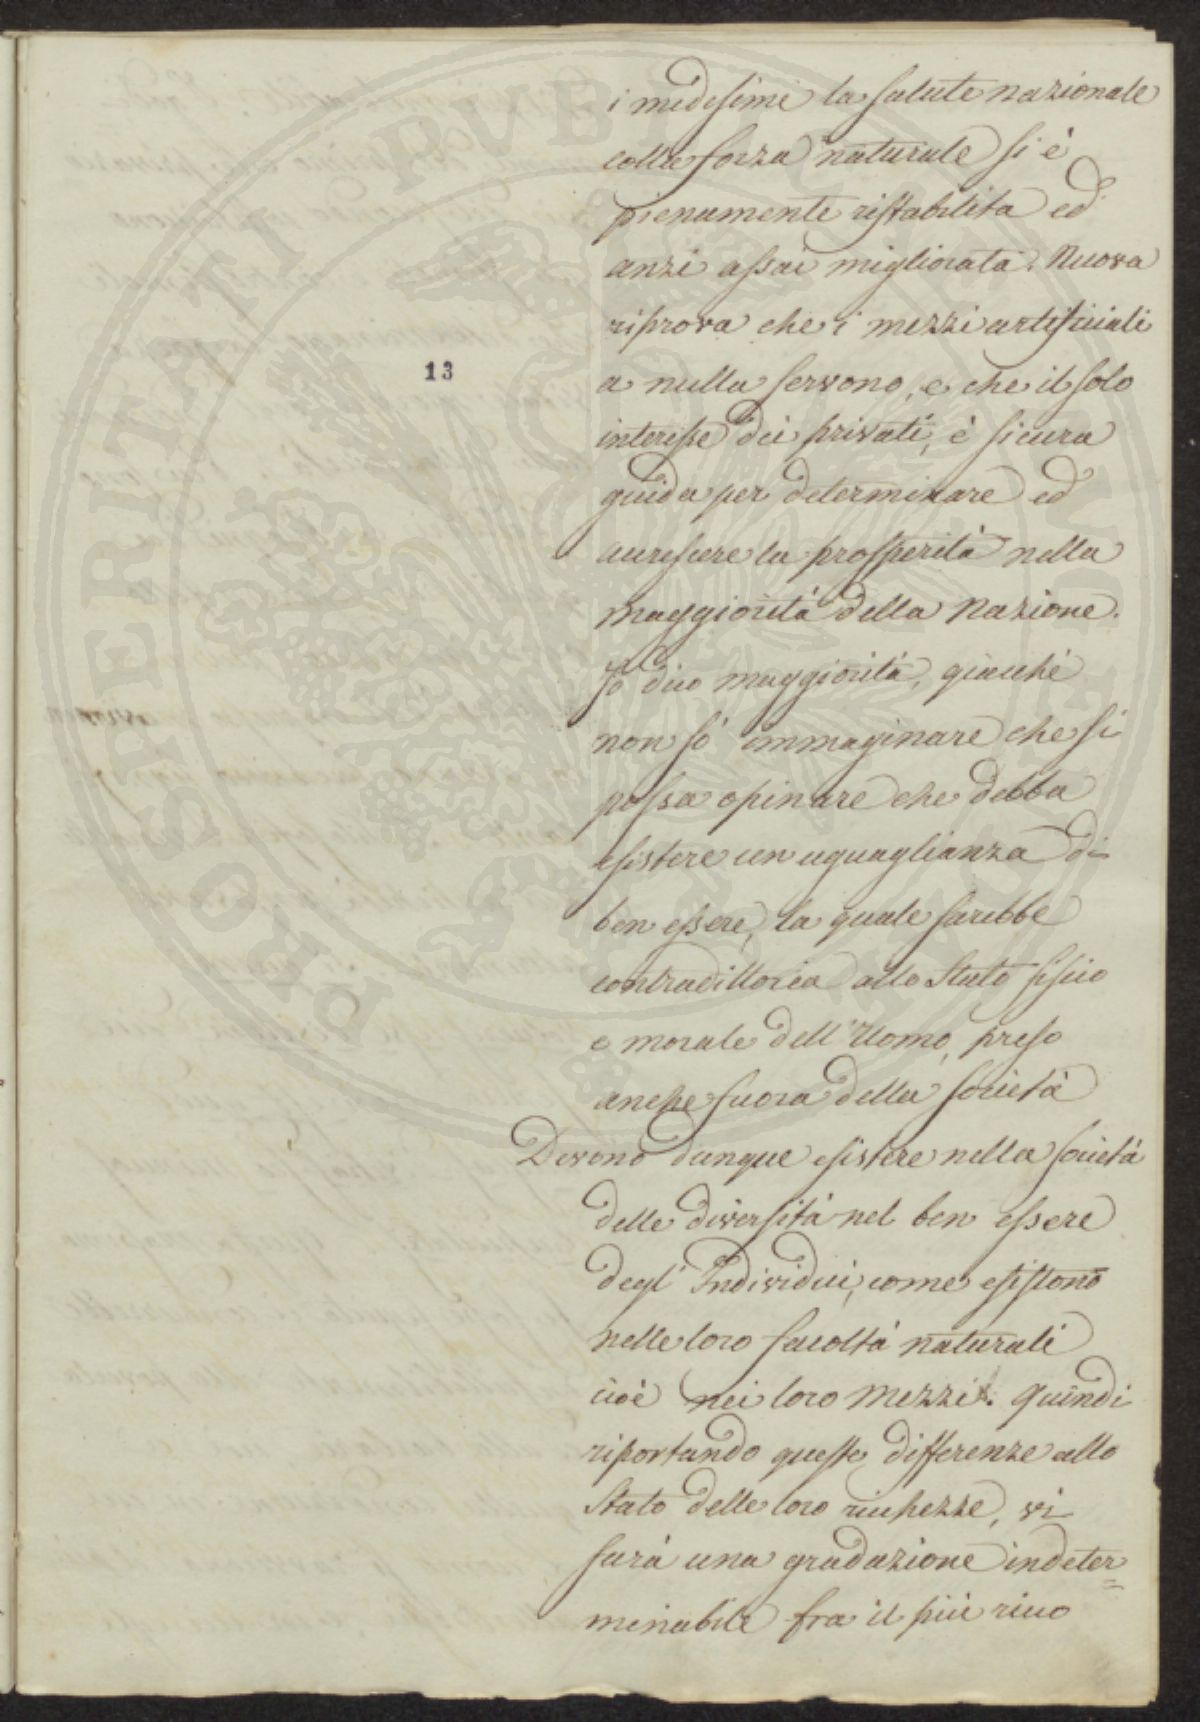 i medesimi la salute nazionale
colla forza naturale si è
pienamente ristabilita ed
anzi assai migliorata. Nuova
riprova che i mezzi artificiali
a nulla servono, e che il solo
interesse dei privati, è sicura
guida per determinare ed
accrescere la prosperità nella
maggiorità della Nazione.
Io dico maggiorità, giacchè
non sò immaginare che si
possa opinare che debba
esistere un uguaglianza di
ben essere, la quale sarebbe
contradittoria allo Stato fisico
e morale dell'Uomo, preso
anche fuora della società
Devono dunque esistere nella società
delle diversità nel ben essere
degl' Individui, come esistono
nelle loro facoltà naturali
cioè nei loro mezzi. Quindi
riportando queste differenze allo
Stato delle loro ricchezze, vi
sarà una gradazione indeter=
minabile fra il più ricco
13
PROSPERITATI PVBLICAE